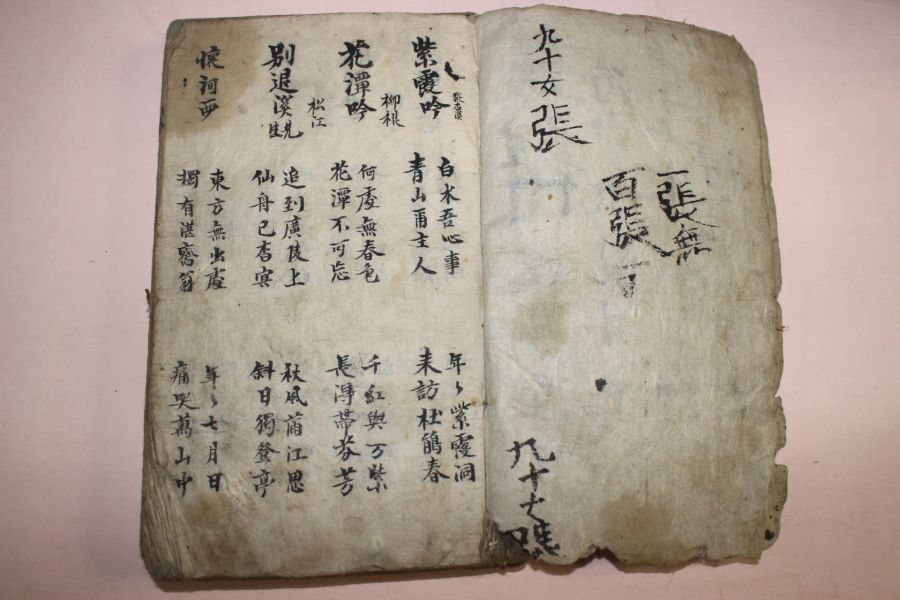 九十女張
一張無
百張
九十七張
紫霞吟
白水吾心事 年〻紫霞洞
青山爾主人 来訪杜鵑春
花潭吟 柳根
何處無春色 千紅與万紫
花潭不可忘 長得帶芬芳
別退溪先生 松江
追到廣陵上 秋風滿江思
仙舟已杳冥 斜日獨登亭
懷河西
東方無出處 年〻七月日
獨有湛齋翁 痛哭萬山中